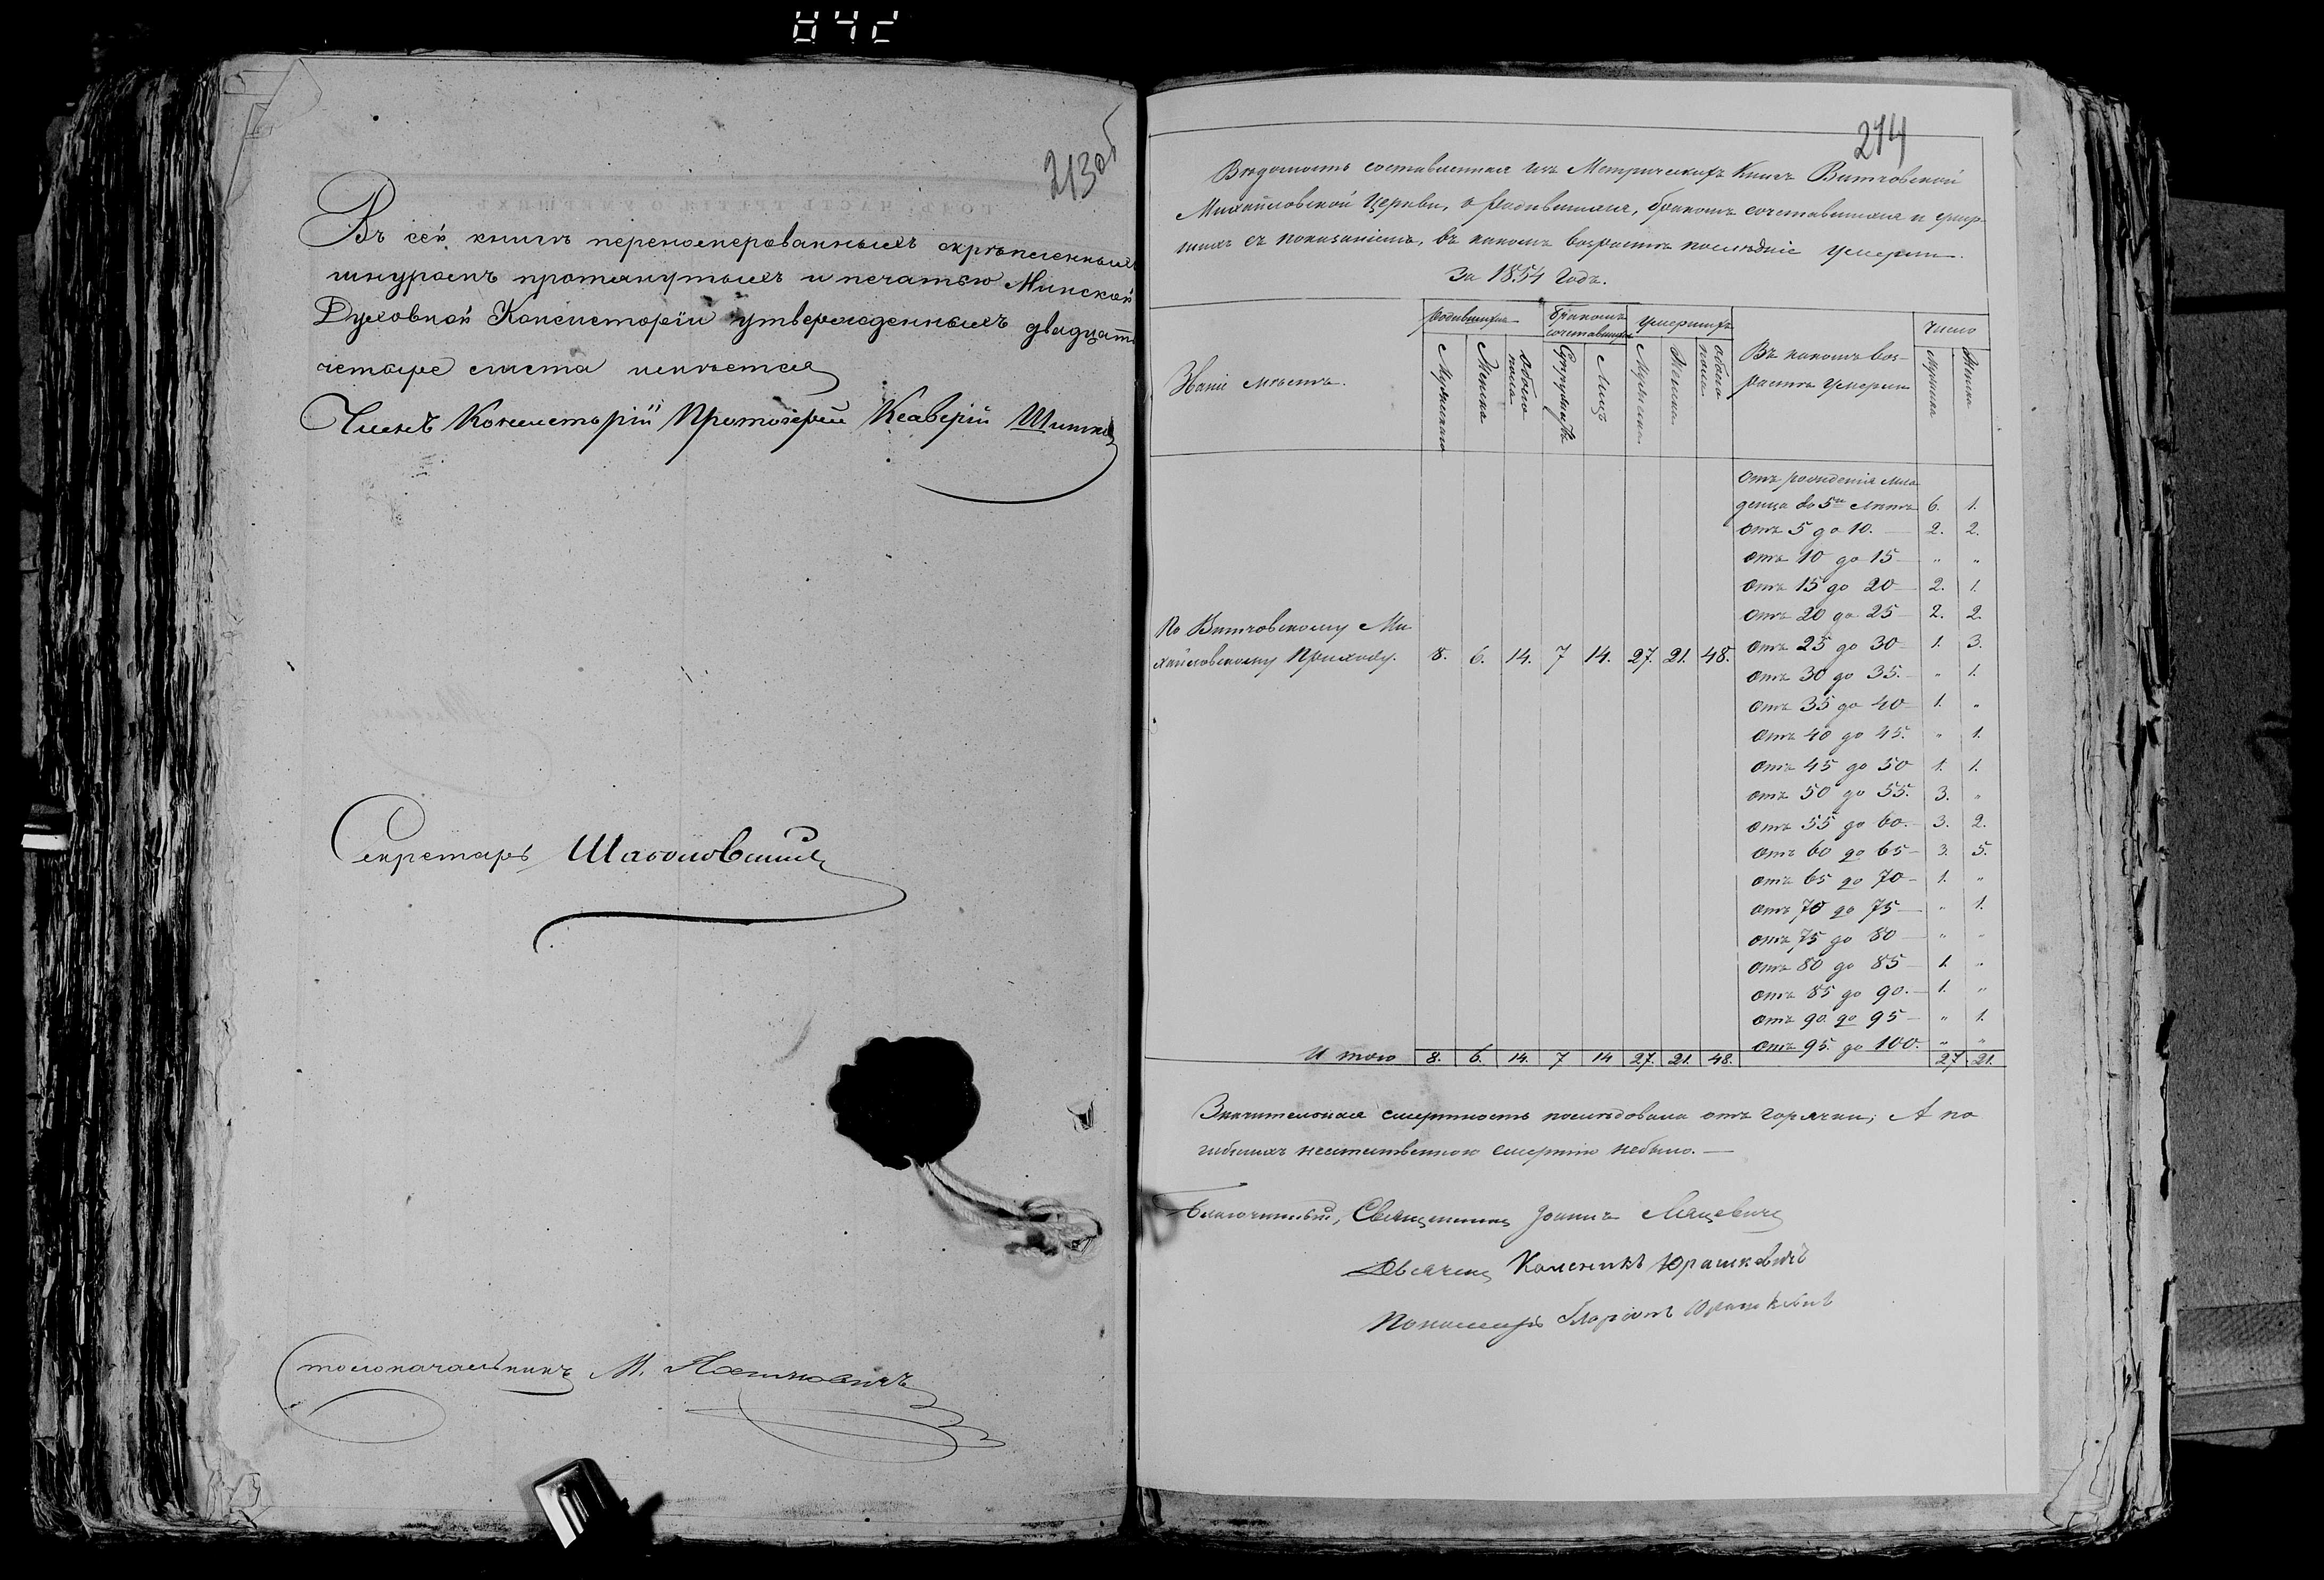 213об
Въ сей книгѣ перенономерованныхъ скрѣпленныхъ
шнуромъ протянутыхъ и печатью Минской
Духовной Консисторіи утвержденныхъ двадцать
четыре листа имѣется
Членъ Консисторіи Протоіерей Ксаверій
Секретарь
Столоначальникъ М.
214
Вѣдомость составленная изъ Метрическихъ Книгъ Витчовской
Михайловской Церкви, о Родившихся, бракомъ сочетавшихся и умер-
шихъ съ показаніемъ, въ какомъ возрастѣ послѣдніе умерли.
За 1854 Годъ.
Родившихся Бракомъ сочетавшихся Умершихъ Число
Званіе мѣстъ. Мужеска Женска Обоего пола Супружествъ Лицъ Мужеска Женска Обоего пола Въ какомъ воз-
растѣ умерли Мужска Женска
Отъ рожденія мла
денца до 5ти лѣтъ 6. 1.
Отъ 5 до 10. 2. 2.
Отъ 10 до 15 " "
Отъ 15 до 20 2. 1.
Отъ 20 до 25 2. 2.
По Витчовскому Ми
хайловскому Приходу. 8. 6. 14. 7 14. 27. 21. 48.
Отъ 25 до 30 1. 3.
Отъ 30 до 35. " 1.
Отъ 35 до 40 1. "
Отъ 40 до 45. " 1.
Отъ 45 до 50 1. 1.
Отъ 50 до 55. 3. "
Отъ 55 до 60. 3. 2.
Отъ 60 до 65 3. 5.
Отъ 65 до 70 1. "
Отъ 70 до 75 " 1.
Отъ 75 до 80 " "
Отъ 80 до 85 1. "
Отъ 85 до 90. 1. "
Отъ 90 до 95 " 1.
Отъ 95 до 100. " "
И того 8. 6. 14. 7 14 27. 21. 48. 27 21.
Значительная смертность послѣдовала отъ горячки; А по
гибшихъ неестественною смертію небыло.
Благочинный, Священникъ Іоаннъ Мацевичъ
Дьячекъ Юрашкевичъ
Пономарь Юрашкевичъ